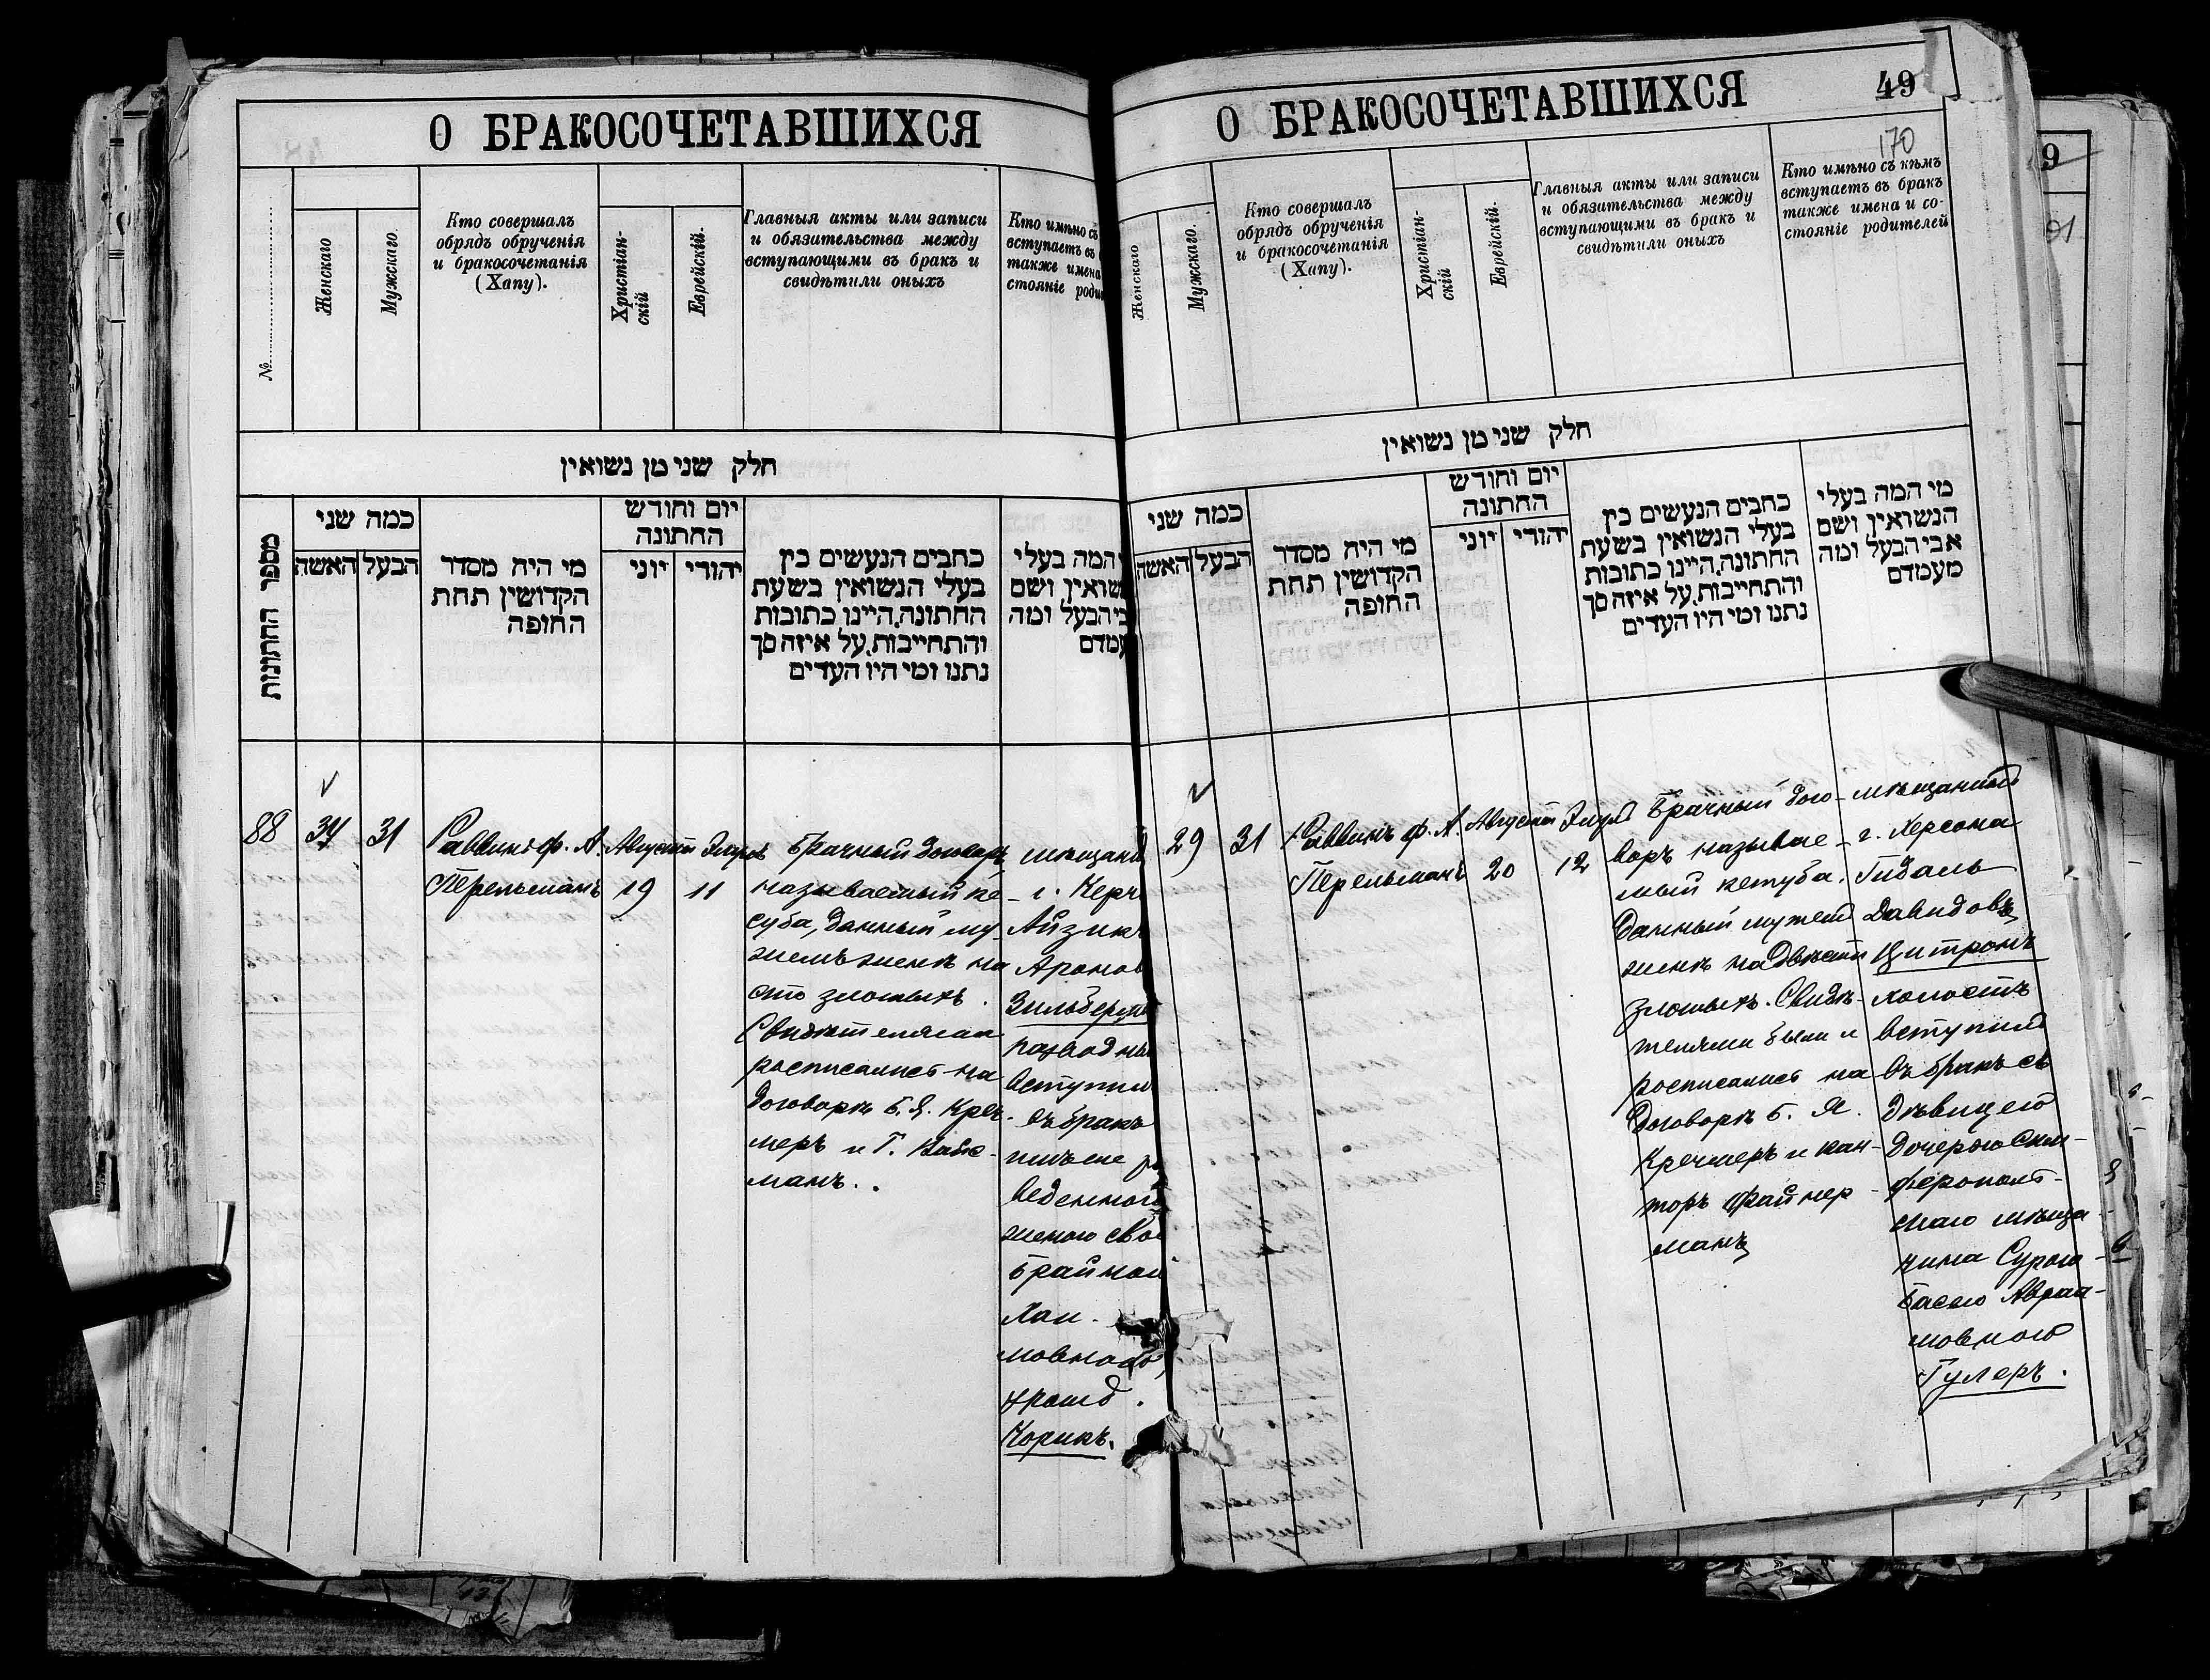 О БРАКОСОЧЕТАВШИХСЯ
№
Женскаго
Мужскаго.
Кто совершалъ
обрядъ обрученія
и бракосочетанія
(Хапу).
Христіан-
скій
Еврейскій.
Главныя акты или записи
и обязательства между
вступающими въ бракъ и
свидѣтили оныхъ
Кто имѣно съ
вступаетъ въ
также имена
стояніе роди
חלק שני מן נשואין
מספר החתונות
כמה שני
האשה
הבעל
מי היה מסדר
הקדושין תחת
החופה
יום וחודש
החתונה
יוני
יהודי
כתבים הנעשים בין
בעלי הנשואין בשעת
החתונה.היינו כתובות
והתחייבות.על איזה סך
נתנו ומי היו העדים
המה בעלי
שואין ושם
בי הבעל ומה
עמדם
88
34
31
Раввинъ ф. А.
Перельманъ
Августъ
19
Элулъ
11
Брачный договоръ,
называемый ке-
суба, данный му-
жемъ женѣ на
сто злотыхъ.
Свидѣтелями
росписались на
договорѣ Б. Я. Креч-
меръ и Г. Вайс-
манъ.
мѣщани
г. Керч
Айзикъ
Аронов
Зильберш
разводны
вступил
въ бракъ
веденной
женою сво
Брайною
Хаи-
мовною,
урожд.
Корикъ.
О БРАКОСОЧЕТАВШИХСЯ
49
170
Женскаго
Мужскаго.
Кто совершалъ
обрядъ обрученія
и бракосочетанія
(Хапу).
Христіан-
скій
Еврейскій.
Главныя акты или записи
и обязательства между
вступающими въ бракъ и
свидѣтили оныхъ
Кто имѣно съ кѣмъ
вступаетъ въ бракъ
также имена и со-
стояніе родителей
חלק שני מן נשואין
כמה שני
האשה
הבעל
מי היה מסדר
הקדושין תחת
החופה
יום וחודש
החתונה
יוני
יהודי
כתבים הנעשים בין
בעלי הנשואין בשעת
החתונה.היינו כתובות
והתחייבות.על איזה סך
נתנו ומי היו העדים
מי המה בעלי
הנשואין ושם
אבי הבעל ומה
מעמדם
29
31
Раввинъ ф. А.
Перельманъ
Августъ
20
Элулъ
12
Брачный дого-
воръ называе-
мый кетуба,
данный мужемъ
женѣ на двѣсти
злотыхъ. Свидѣ-
телями были и
росписались на
договорѣ Б. Я.
Кречмеръ и кан-
торъ Файнер-
манъ
мѣщанинъ
г. Херсона
Гидаль
Давидовъ
Цитронъ
холостъ
вступилъ
въ бракъ съ
дѣвицею
дочерью Сим-
ферополь-
скаго мѣща-
нина Сурою-
Басею Абрам-
мовною
Гулеръ.
9
01